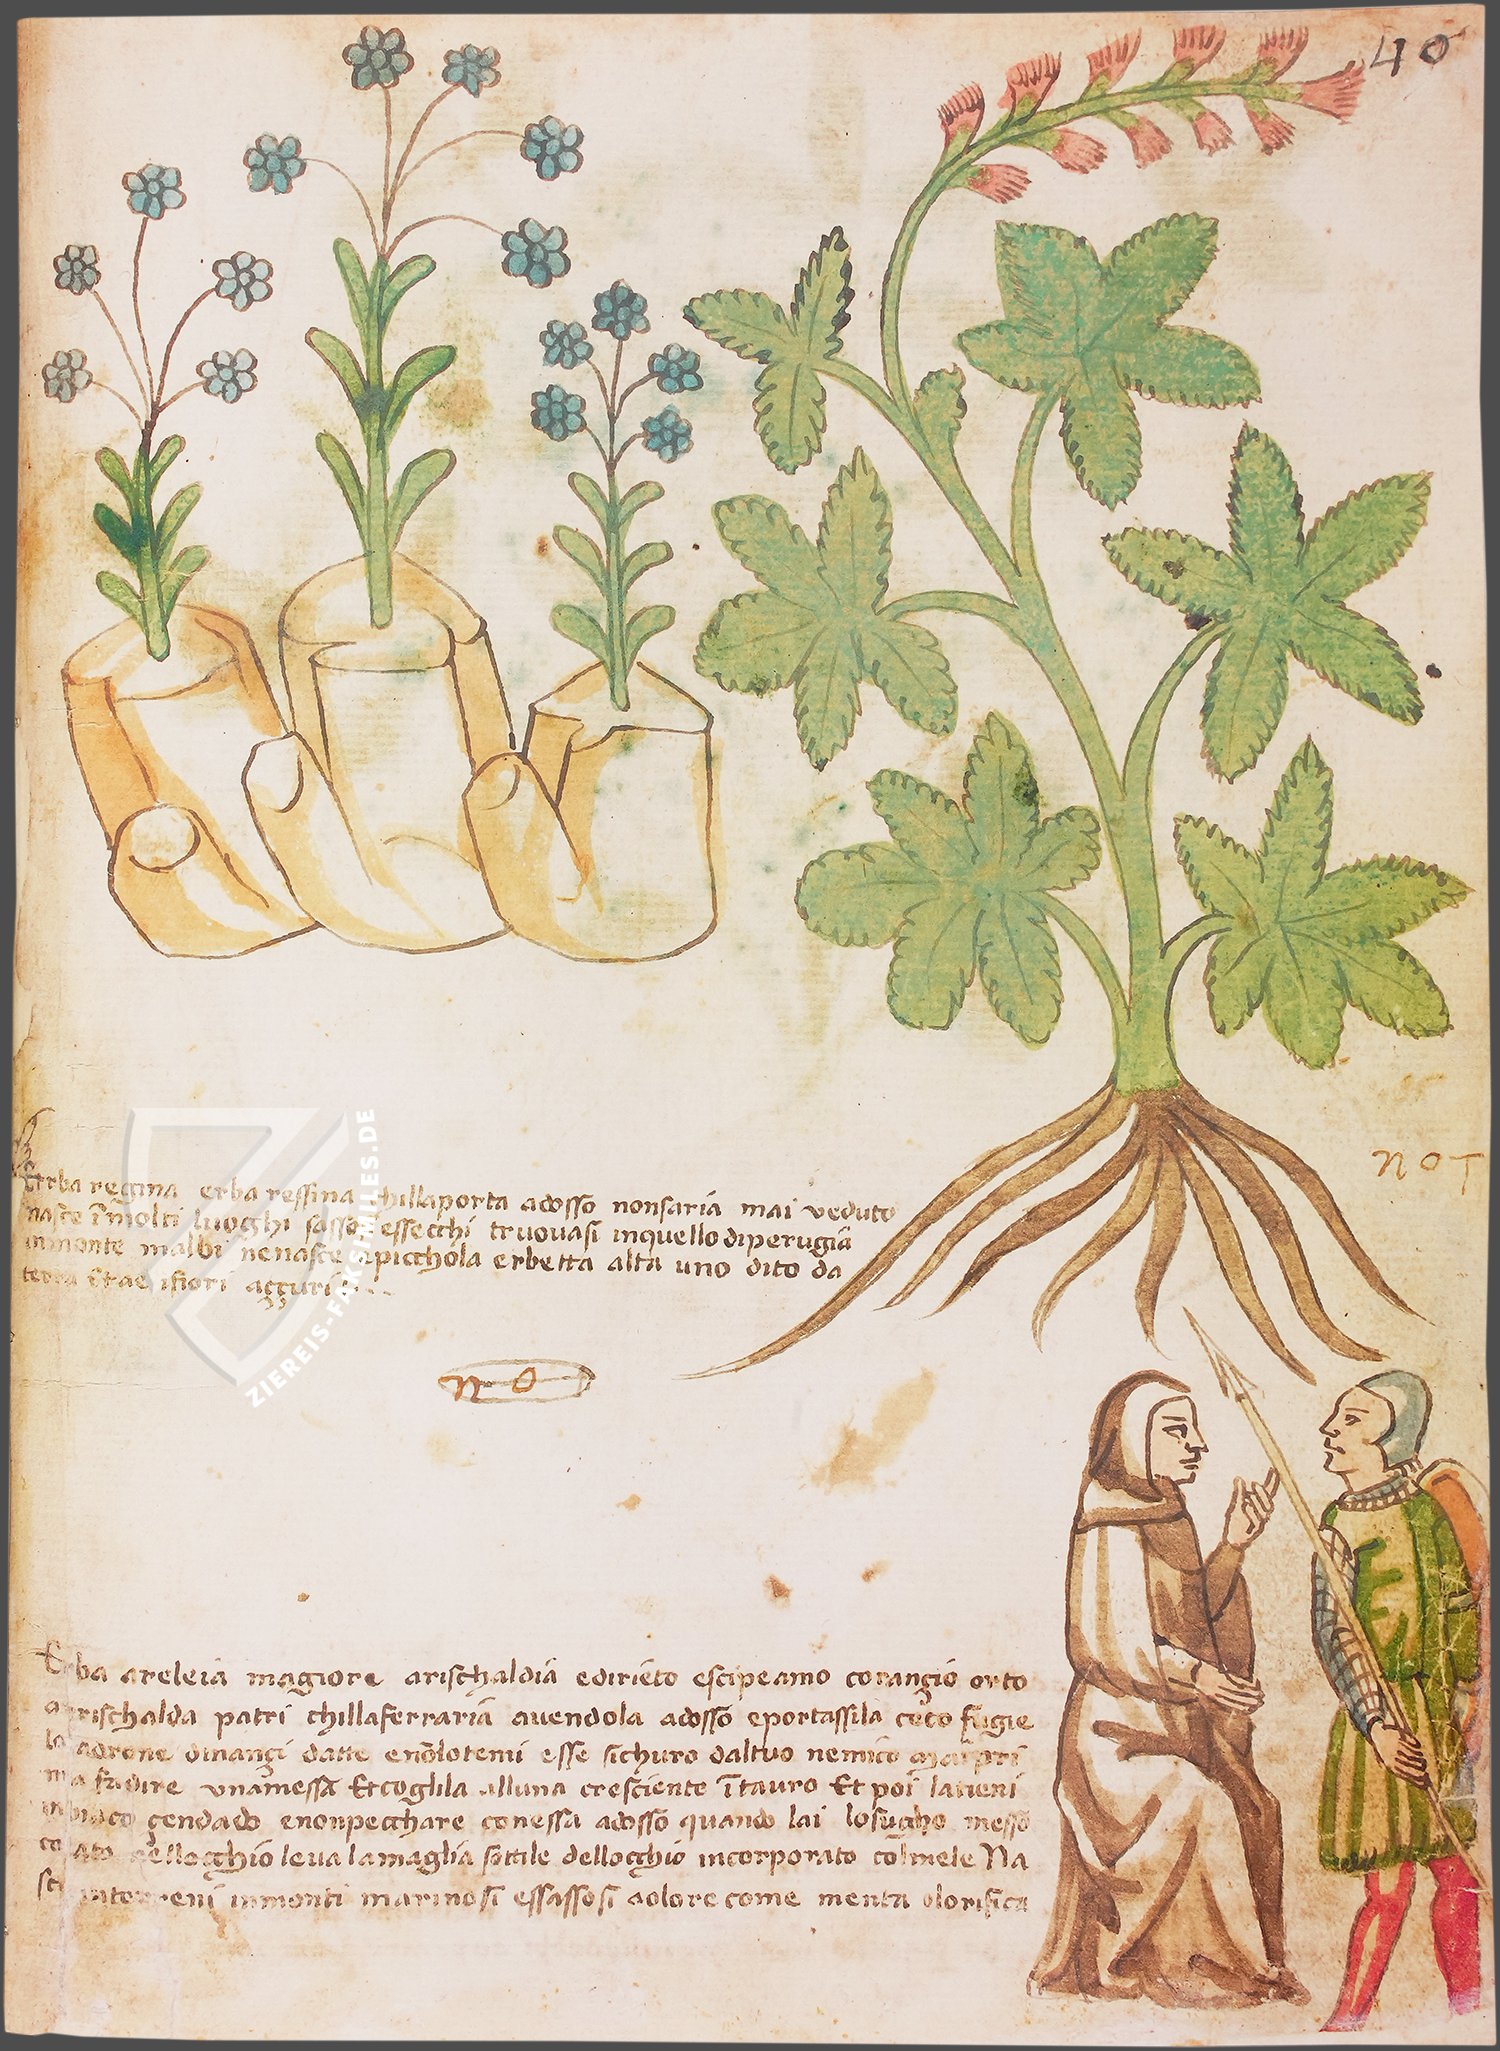 40
Erba regina erba ressina chillaporta adosso nonsaria mai veduto
nasce ī molti luoghi sasso essecchi truovasi inquello diperugia
inmonte malbi nenasce apicchola erbetta alta uno dito da
terra Et ae ifiori aççuri
not
no
ZIEREIS-FACSIMILES.DE
Erba areleia magiore arischaldia edirieto escipeamo corançio orto
arischalda patri chillaferraria avendola adosso eportassila ceco fugie
ladrone dinançi datte enolotemi esse sichuro daltuo nemico
ma fadire unamessa Et coglila alluna cresciente ī tauro Et poi latieni
çendado enonpecchare conessa adosso quando lai losugho messo
dellocchio leva lamaglia sottile dellocchio incorporato colmele Na
intorreni inmonti marinosi essassosi aolore come menta olorifica